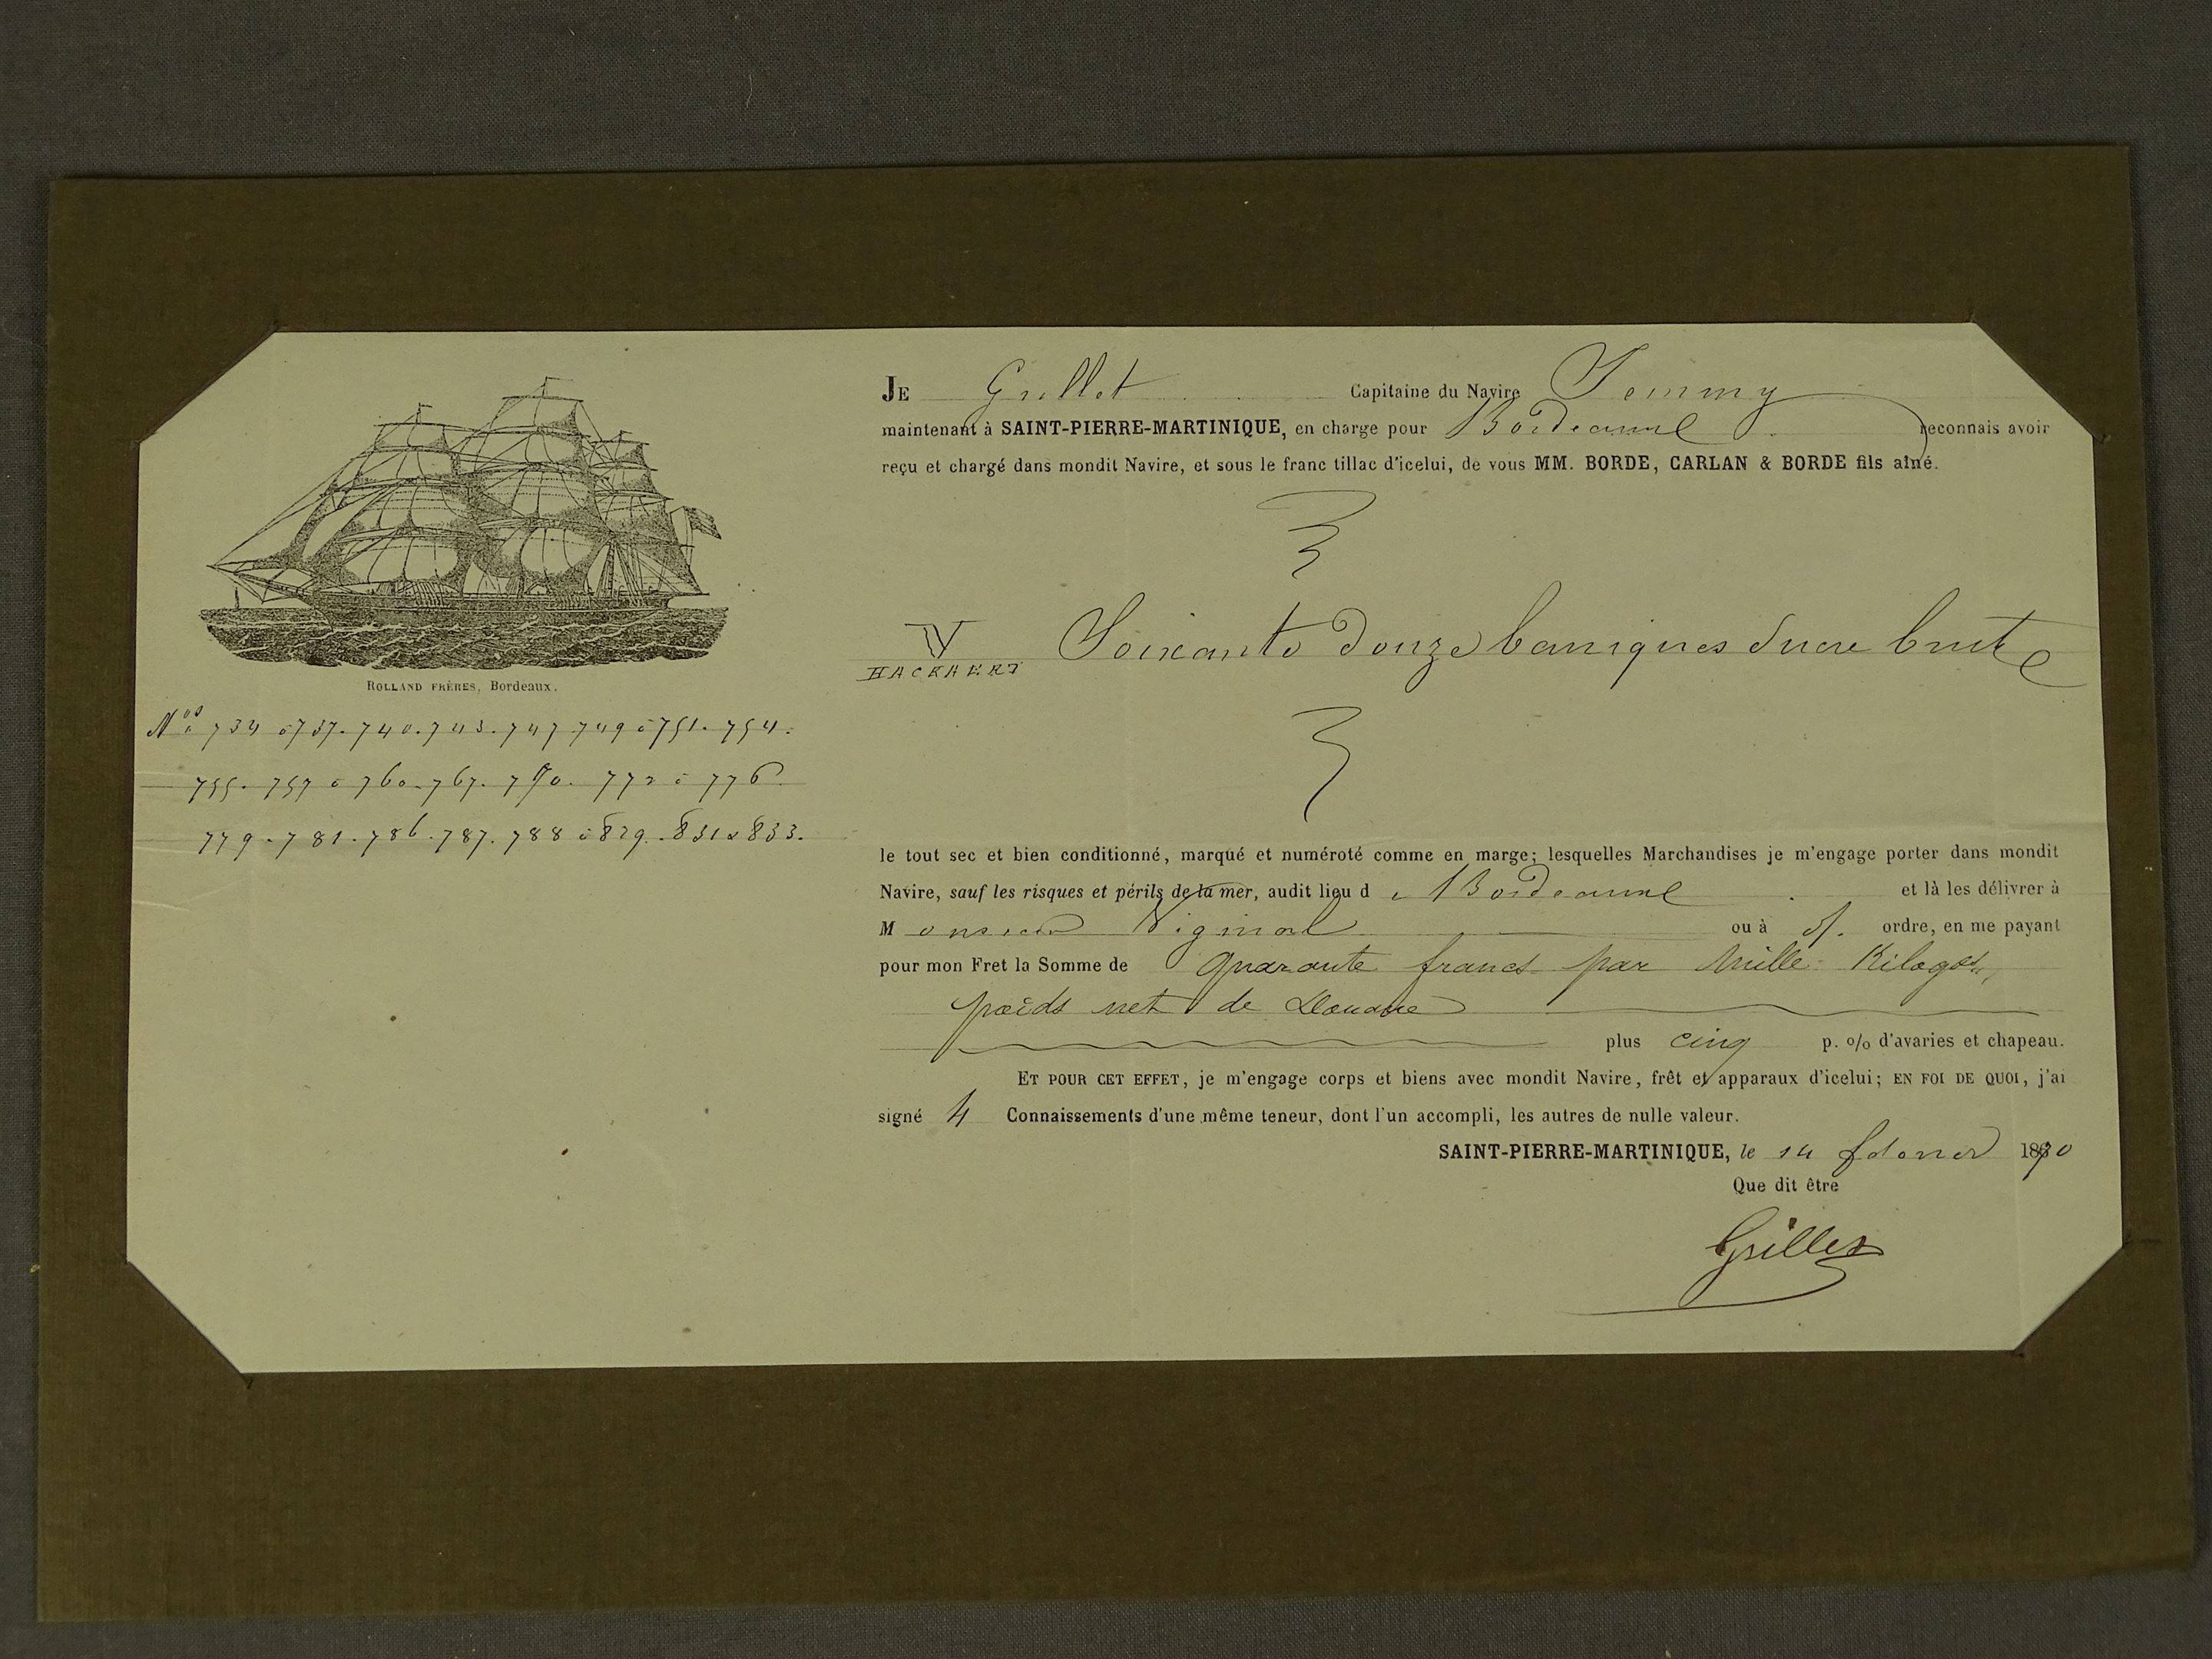 ROLLAND FRÈRES, Bordeaux.
Nos 734 à 737. 740. 743. 747 749 à 751. 754.
755. 757 à 760. 767. 770. 772 à 776
779. 781. 786. 787. 788 à 829. 831 à 833.
JE Grillet Capitaine du Navire Jemmy
maintenant à SAINT-PIERRE-MARTINIQUE, en charge pour Bordeaux reconnais avoir
reçu et chargé dans mondit Navire, et sous le franc tillac d'icelui, de vous MM. BORDE, CARLAN & BORDE fils aîné.
V Soixante douze barriques Sucre brut
HACKAERT
le tout sec et bien conditionné, marqué et numéroté comme en marge; lesquelles Marchandises je m'engage porter dans mondit
Navire, sauf les risques et périls de la mer, audit lieu de Bordeaux et là les délivrer à
Monsieur Viginal ou à s/. ordre, en me payant
pour mon Fret la Somme de quarante francs par Mille Kilogos,
poids net de Douane
plus cinq p. % d'avaries et chapeau.
ET POUR CET EFFET, je m'engage corps et biens avec mondit Navire, frêt et apparaux d'icelui; EN FOI DE QUOI, j'ai
signé 4 Connaissements d'une même teneur, dont l'un accompli, les autres de nulle valeur.
SAINT-PIERRE-MARTINIQUE, le 14 février 1870
Que dit être
Grillet